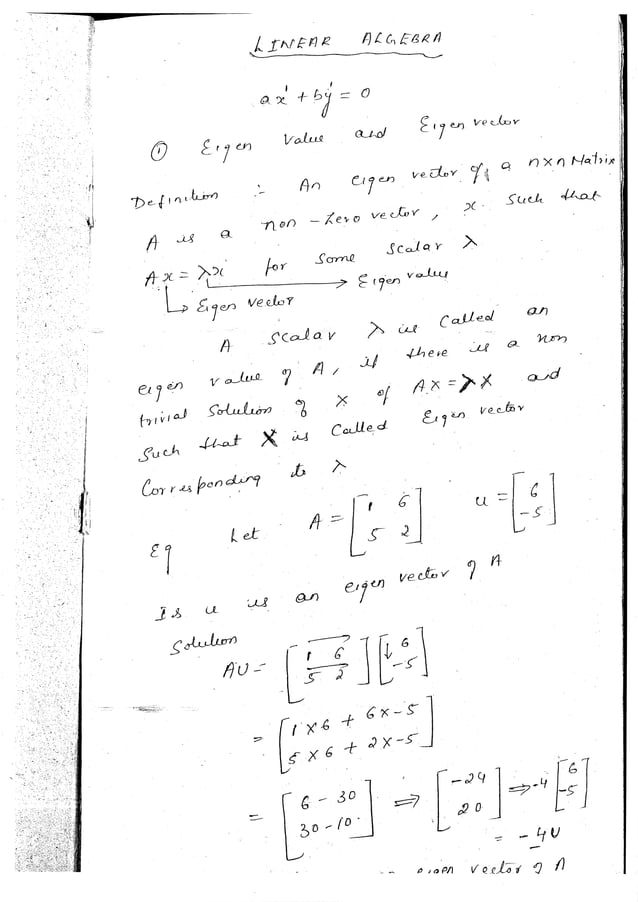 LINEAR ALGEBRA
ax' + by' = 0
① Eigen Value and Eigen vector
Definition :- An eigen vector of a n×n Matrix
A is a non-zero vector, x such that
Ax = λx for some scalar λ
→ Eigen value
↳ Eigen vector
A scalar λ is called an
eigen value of A, if there is a non
trivial solution of x of AX = λX and
such that X is called Eigen vector
Corresponding to λ
Eg Let A = [1 6; 5 2] u = [6; -5]
Is u is an eigen vector of A
Solution
AU = [1 6; 5 2] [6; -5]
= [1×6 + 6×-5; 5×6 + 2×-5]
= [6-30; 30-10] ⇒ [-24; 20] ⇒ -4 [6; -5]
= -4U
eigen vector of A